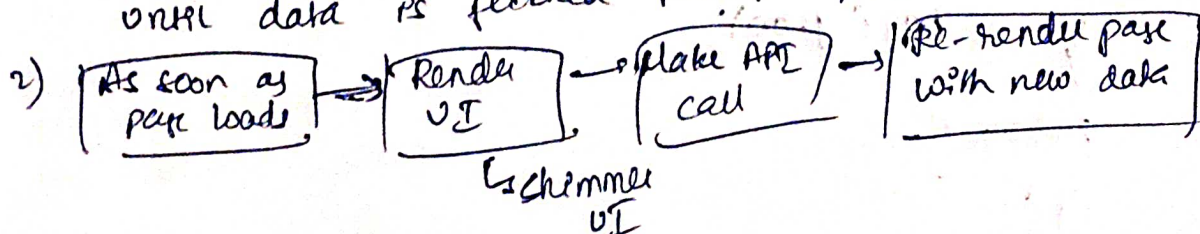 until data is
2) As soon as page loads → Render UI → Make API call → Re-render page with new data
↳ schimmer UI